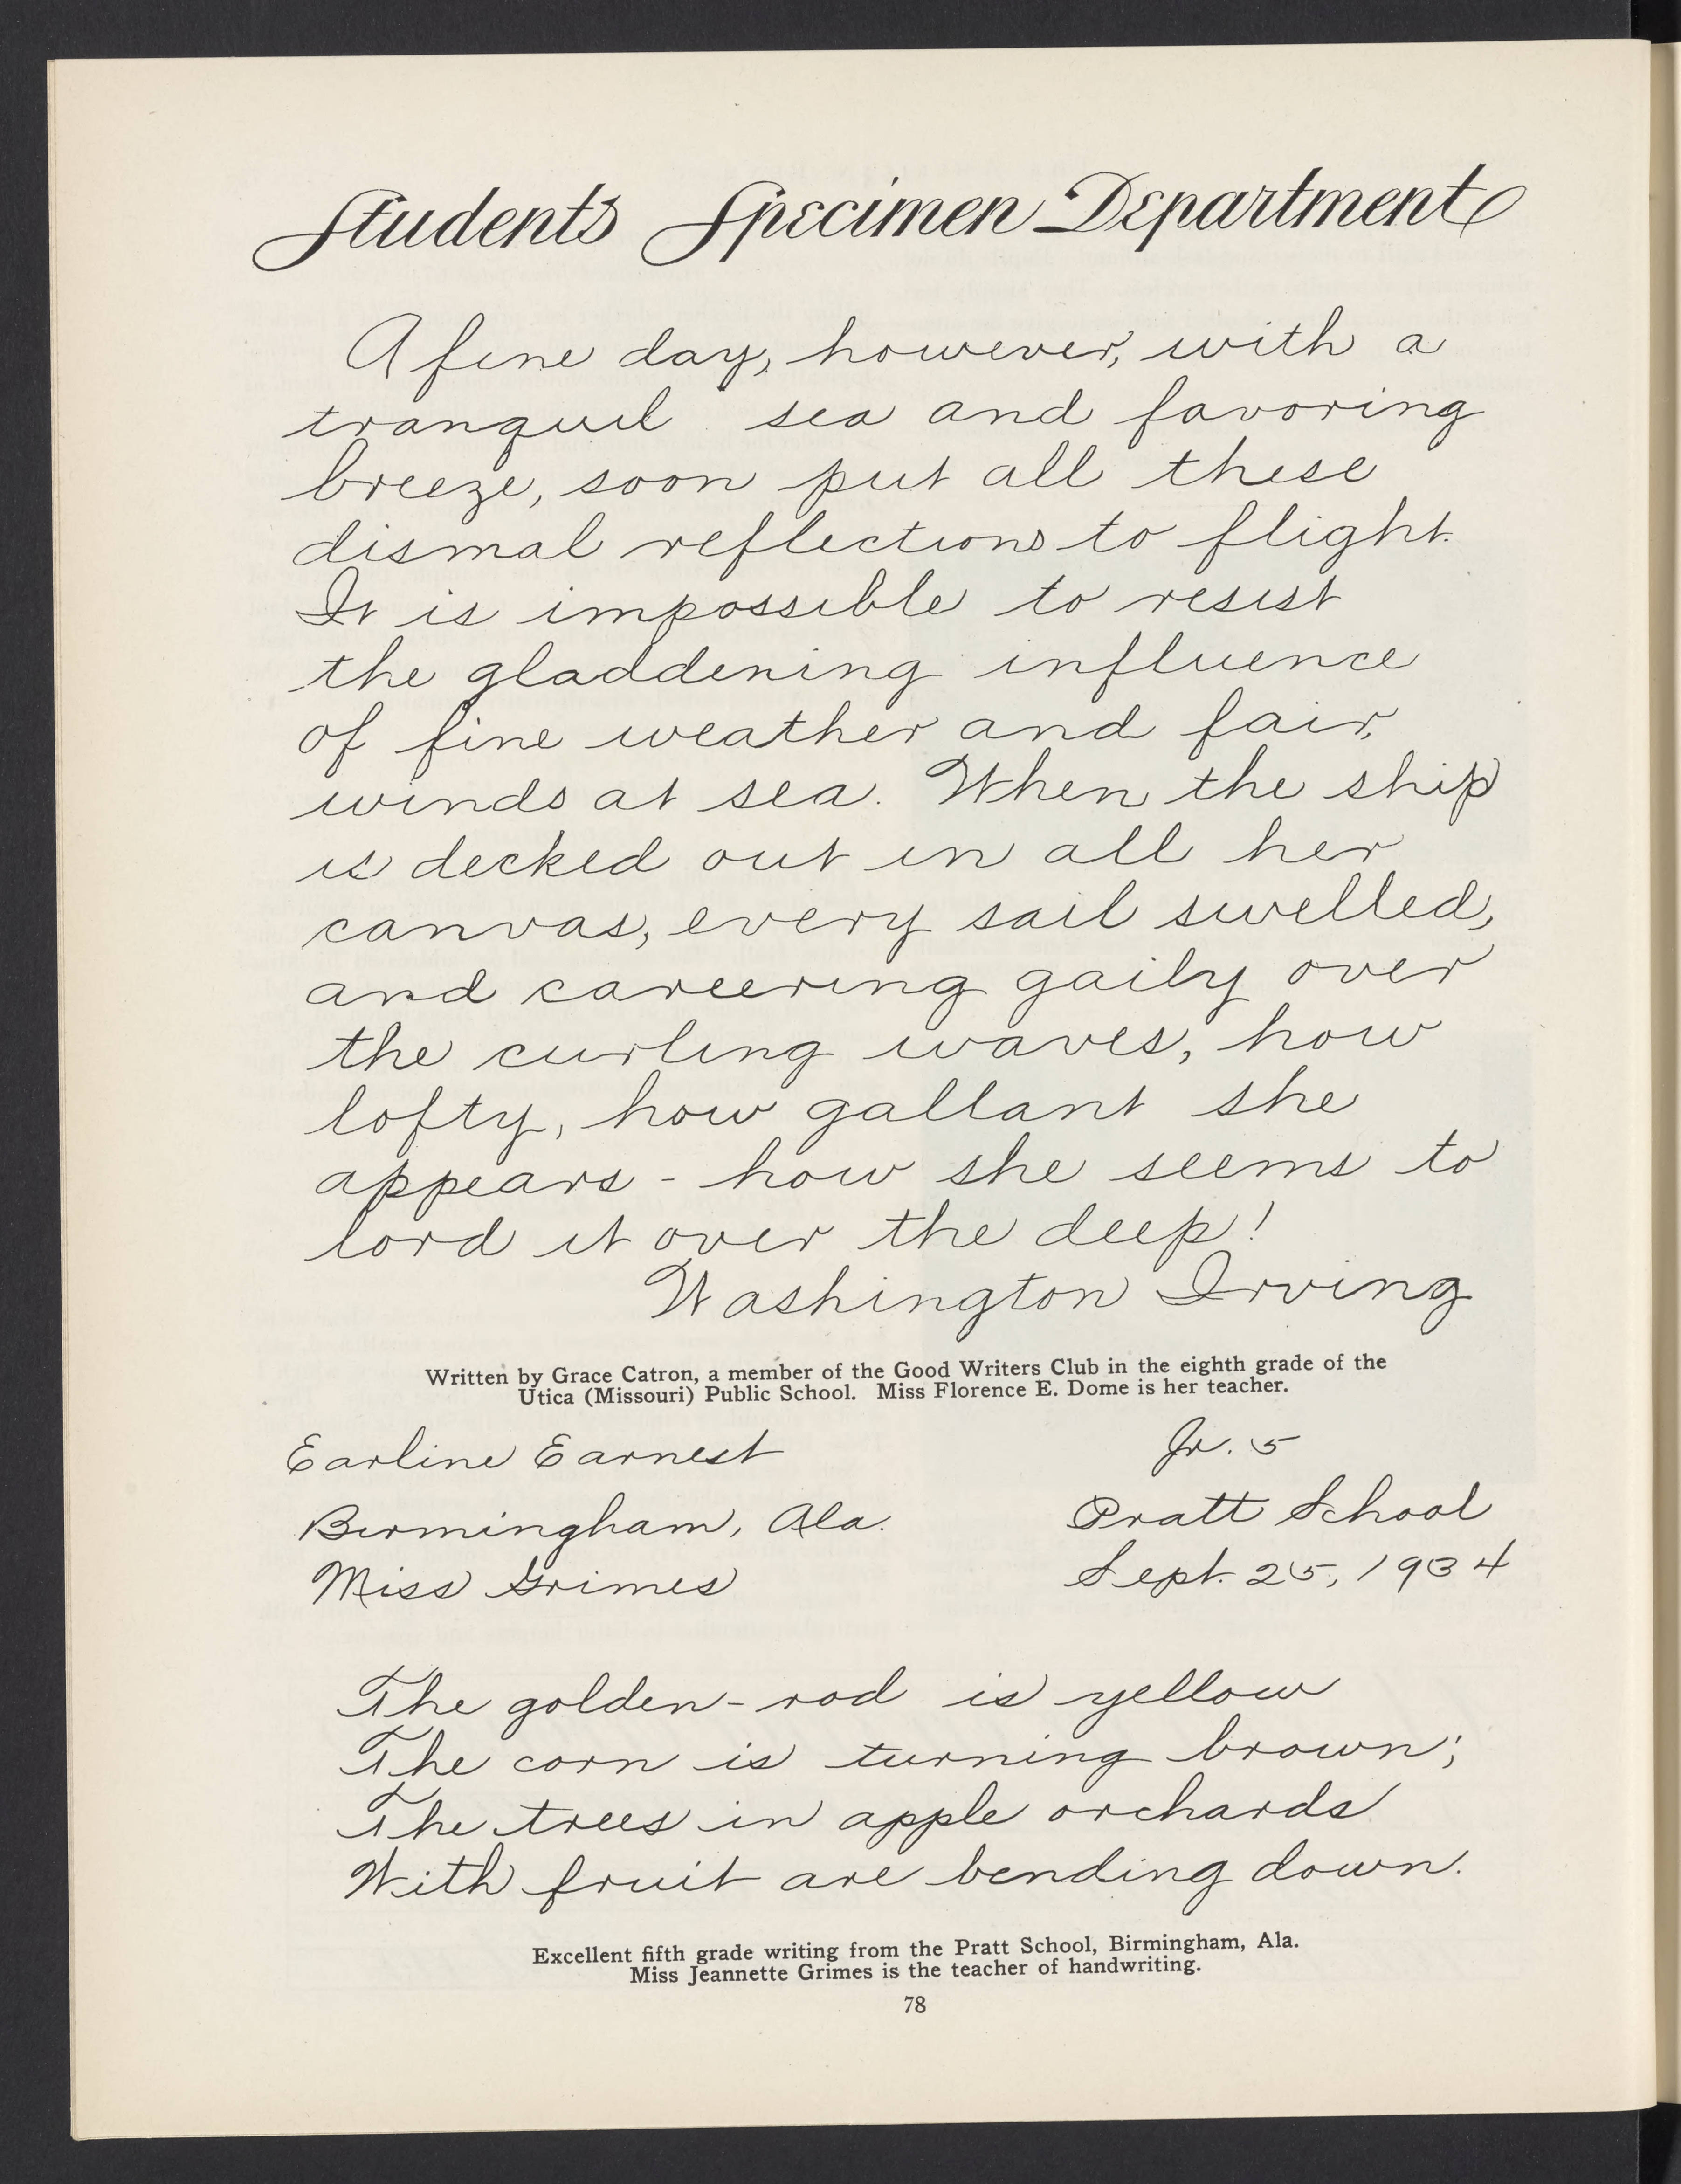 Students Specimen Department
A fine day, however, with a
tranquil sea and favoring
breeze, soon put all these
dismal reflections to flight.
It is impossible to resist
the gladdening influence
of fine weather and fair,
winds at sea. When the ship
is decked out in all her
canvas, every sail swelled,
and careering gaily over
the curling waves, how
lofty, how gallant she
appears - how she seems to
lord it over the deep!
Washington Irving
Written by Grace Catron, a member of the Good Writers Club in the eighth grade of the
Utica (Missouri) Public School. Miss Florence E. Dome is her teacher.
Earline Earnest Gr. 5
Birmingham, Ala. Pratt School
Miss Grimes Sept. 25, 1934
The golden-rod is yellow
The corn is turning brown;
The trees in apple orchards
With fruit are bending down.
Excellent fifth grade writing from the Pratt School, Birmingham, Ala.
Miss Jeannette Grimes is the teacher of handwriting.
78